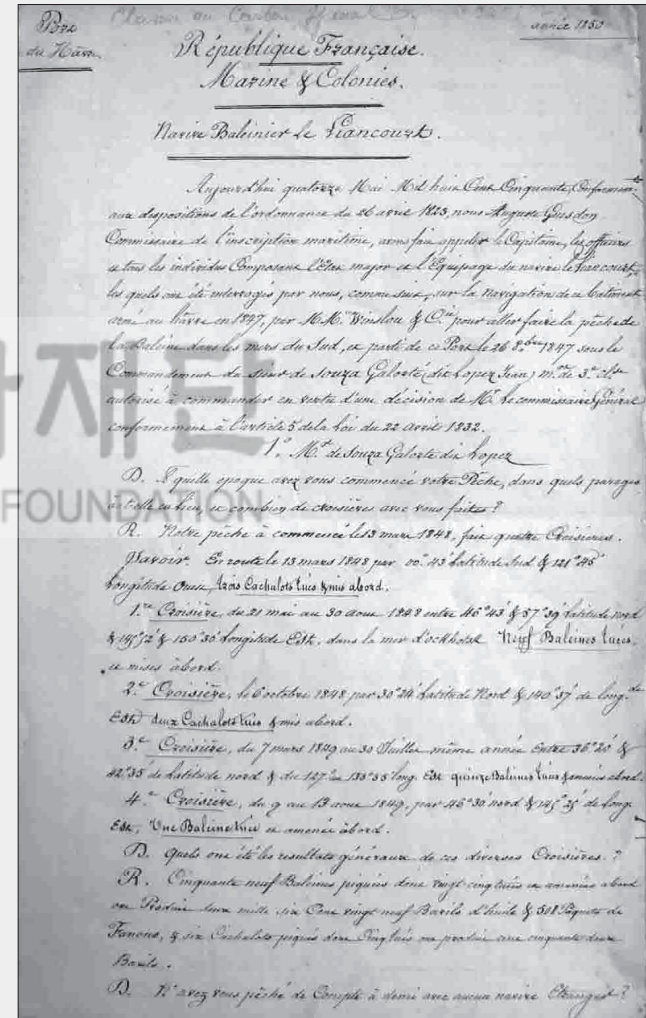 Port
du Havre.
année 1850
République Française.
Marine & Colonies.
Navire Baleinier le Liancourt.
Aujourd'hui quatorze Mai Mil huit Cent Cinquante, Conformément
aux dispositions de l'ordonnance du 26 avril 1823, nous Auguste
Commissaire de l'inscription maritime, avons fait appeler le Capitaine, les officiers
et tous les individus Composant l'Etat major et l'Equipage du navire le Liancourt,
les quels ont été interrogés par nous, comme suit, sur la Navigation de ce batiment
armé au hâvre en 1847, par M.M. Winslow & C.ie pour aller faire la pêche de
la Baleine dans les mers du Sud, et parti de ce Port le 26 8.bre 1847 sous le
Commandement du sieur de Souza Galorte (dit Lopez Jean) m.tre de 3.e cl.sse
autorisé à commander en vertu d'une décision de M.r Le commissaire Général
conformement à l'article 5 de la loi du 22 avril 1832.
1.o M.r de Souza Galorte dit Lopez
D. A quelle epoque avez vous commencé votre Pêche, dans quels parages
a t'elle eu lieu, et combien de croisières avez vous faites?
R. Notre pêche à commencé le 13 mars 1848, fait quatre Croisières.
Savoir. En route le 13 mars 1848 par 00.° 43' Latitude Sud & 121° 45'
Longitude Ouest, trois Cachalots tués & mis abord.
1.re Croisière, du 21 mai au 30 aout 1848 entre 46° 43' & 57° 39' Latitude nord
& 145° 52' & 150° 30' Longitude Est, dans la mer d'ockhotsk Neuf Baleines tuées
et mises àbord.
2.e Croisière, le 6 octobre 1848 par 30° 24' Latitude Nord & 140° 37' de long.de
Est, deux Cachalots tués & mis abord.
3.e Croisière, du 7 mars 1849 au 30 Juillet même année Entre 36° 20' &
42° 35' de Latitude nord & du 127.° au 138° 55' long. Est quinze Baleines tuées & amenées abord.
4.e Croisière, du 9 au 13 aout 1849, par 46° 30' nord & 145° 25' de long.
Est, Une Baleine tuée et amenée àbord.
D. Quels ont été les resultats généraux de ces diverses Croisières?
R. Cinquante neuf Baleines piquées dont vingt cinq tuées et amenées abord
ont Produit deux mille six Cent vingt neuf Barils d'huile & 508 Paquets de
Fanons, & six Cachalots piqués dont Cinq tués ont produit cent cinquante deux
Barils.
D. N'avez vous pêché de Compte à demi avec aucun navire Etranger?
재단
FOUNDATION